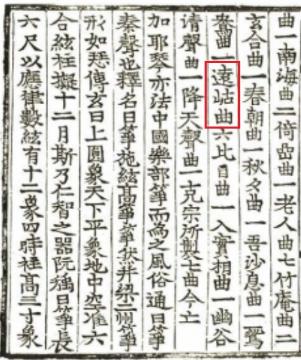 一南海曲二倚嵒曲一老人曲七竹庵曲二
玄合曲一春朝曲一秋夕曲一吾沙息曲一鴛
鴦曲一遠岵曲六比目曲一入實相曲一幽谷
清聲曲一降天聲曲一克宗所製七曲今亡
加耶琴亦法中國樂部箏而爲之風俗通曰箏
秦聲也釋名曰箏施絃高箏箏然并梁二州箏
形如瑟傅玄曰上圓象天下平象地中空准六
合絃柱擬十二月斯乃仁智之器阮瑀曰箏長
六尺以應律數絃有十二象四時柱高三寸象